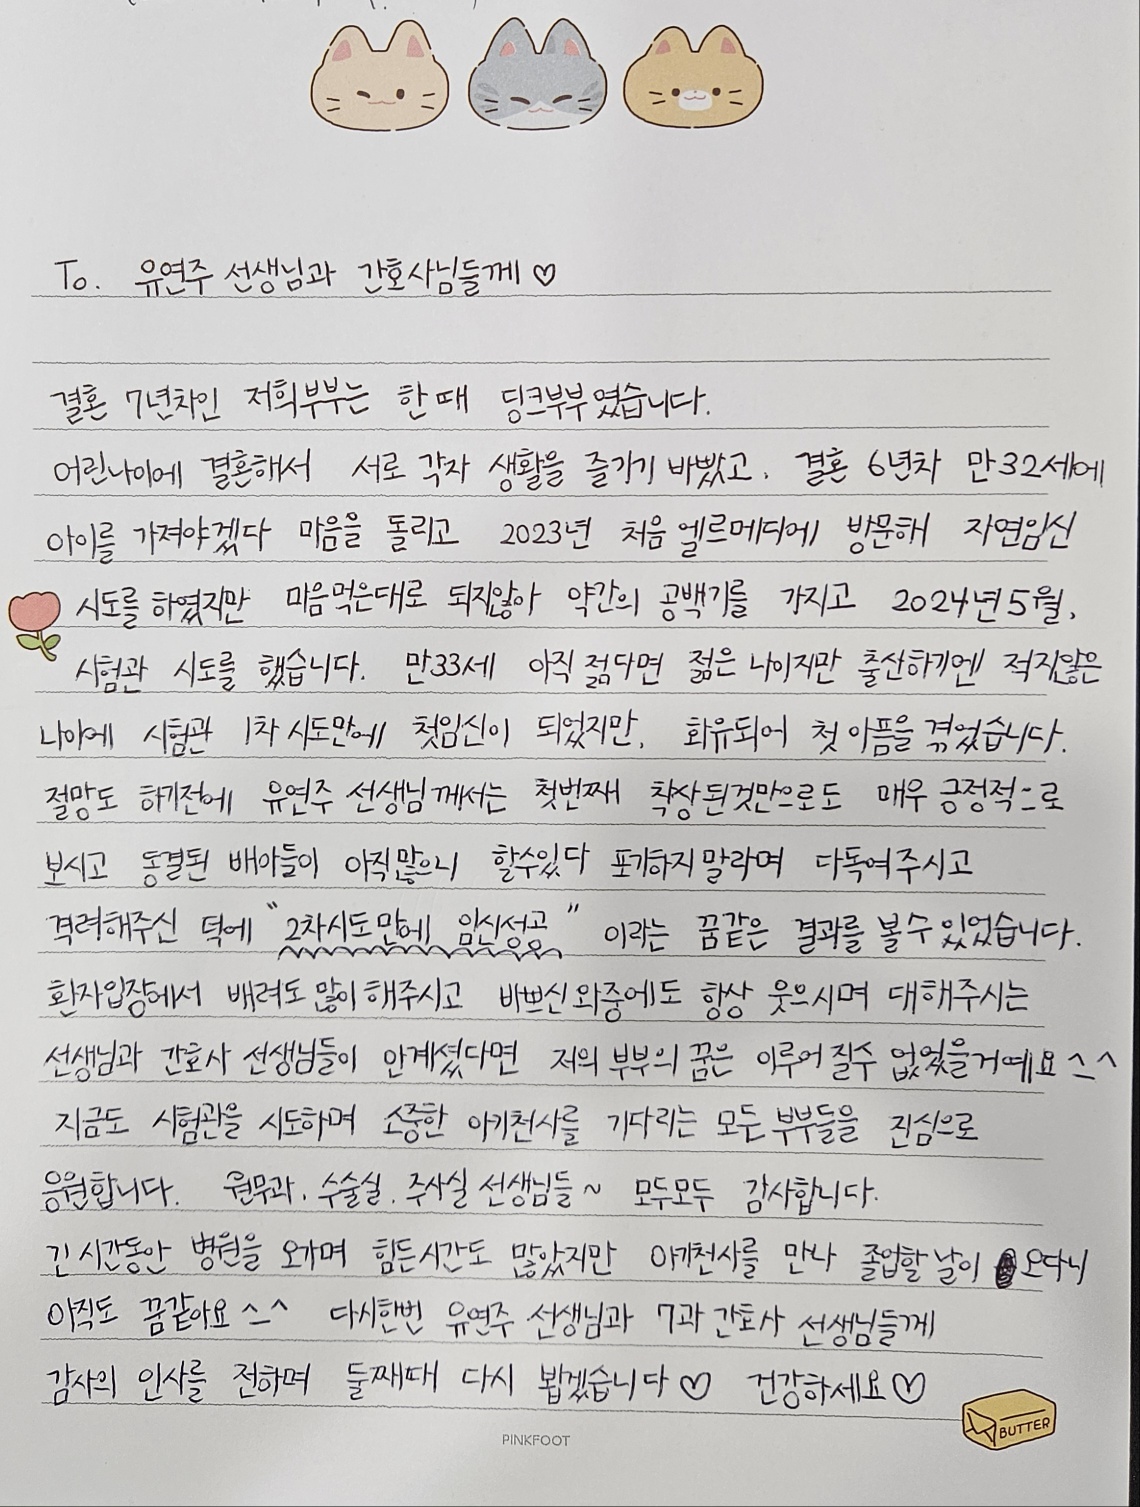 To. 유연주 선생님과 간호사님들께 ♡
결혼 7년차인 저희부부는 한때 딩크부부였습니다.
어린나이에 결혼해서 서로 각자 생활을 즐기기 바빴고, 결혼 6년차 만32세에
아이를 가져야겠다 마음을 돌리고 2023년 처음 엘르메디에 방문해 자연임신
시도를 하였지만 마음먹은대로 되지않아 약간의 공백기를 가지고 2024년 5월,
시험관 시도를 했습니다. 만33세 아직 젊다면 젊은 나이지만 출산하기엔 적지않은
나이에 시험관 1차 시도만에 첫임신이 되었지만, 화유되어 첫 아픔을 겪었습니다.
절망도 하기전에 유연주 선생님께서는 첫번째 착상된것만으로도 매우 긍정적으로
보시고 동결된 배아들이 아직많으니 할수있다 포기하지말라며 다독여주시고
격려해주신 덕에 "2차시도만에 임신성공" 이라는 꿈같은 결과를 볼수 있었습니다.
환자입장에서 배려도 많이 해주시고 바쁘신 와중에도 항상 웃으시며 대해주시는
선생님과 간호사 선생님들이 안계셨다면 저의 부부의 꿈은 이루어 질수 없었을거예요 ^^
지금도 시험관을 시도하며 소중한 아기천사를 기다리는 모든 부부들을 진심으로
응원합니다. 원무과, 수술실, 주사실 선생님들 ~ 모두모두 감사합니다.
긴 시간동안 병원을 오가며 힘든시간도 많았지만 아기천사를 만나 졸업할 날이 오다니
아직도 꿈같아요 ^^ 다시한번 유연주 선생님과 7과 간호사 선생님들께
감사의 인사를 전하며 둘째때 다시 뵙겠습니다 ♡ 건강하세요 ♡
BUTTER
PINKFOOT